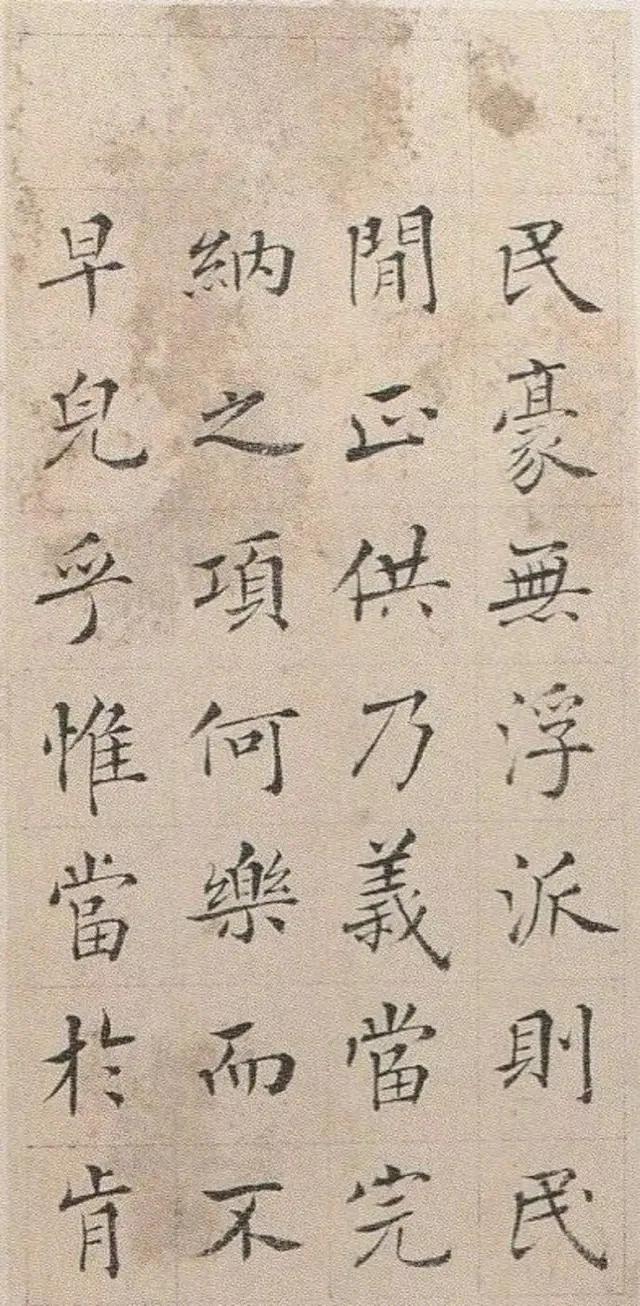 民豪無浮派則民
閒正供乃義當完
納之項何樂而不
早皃乎惟當於肯